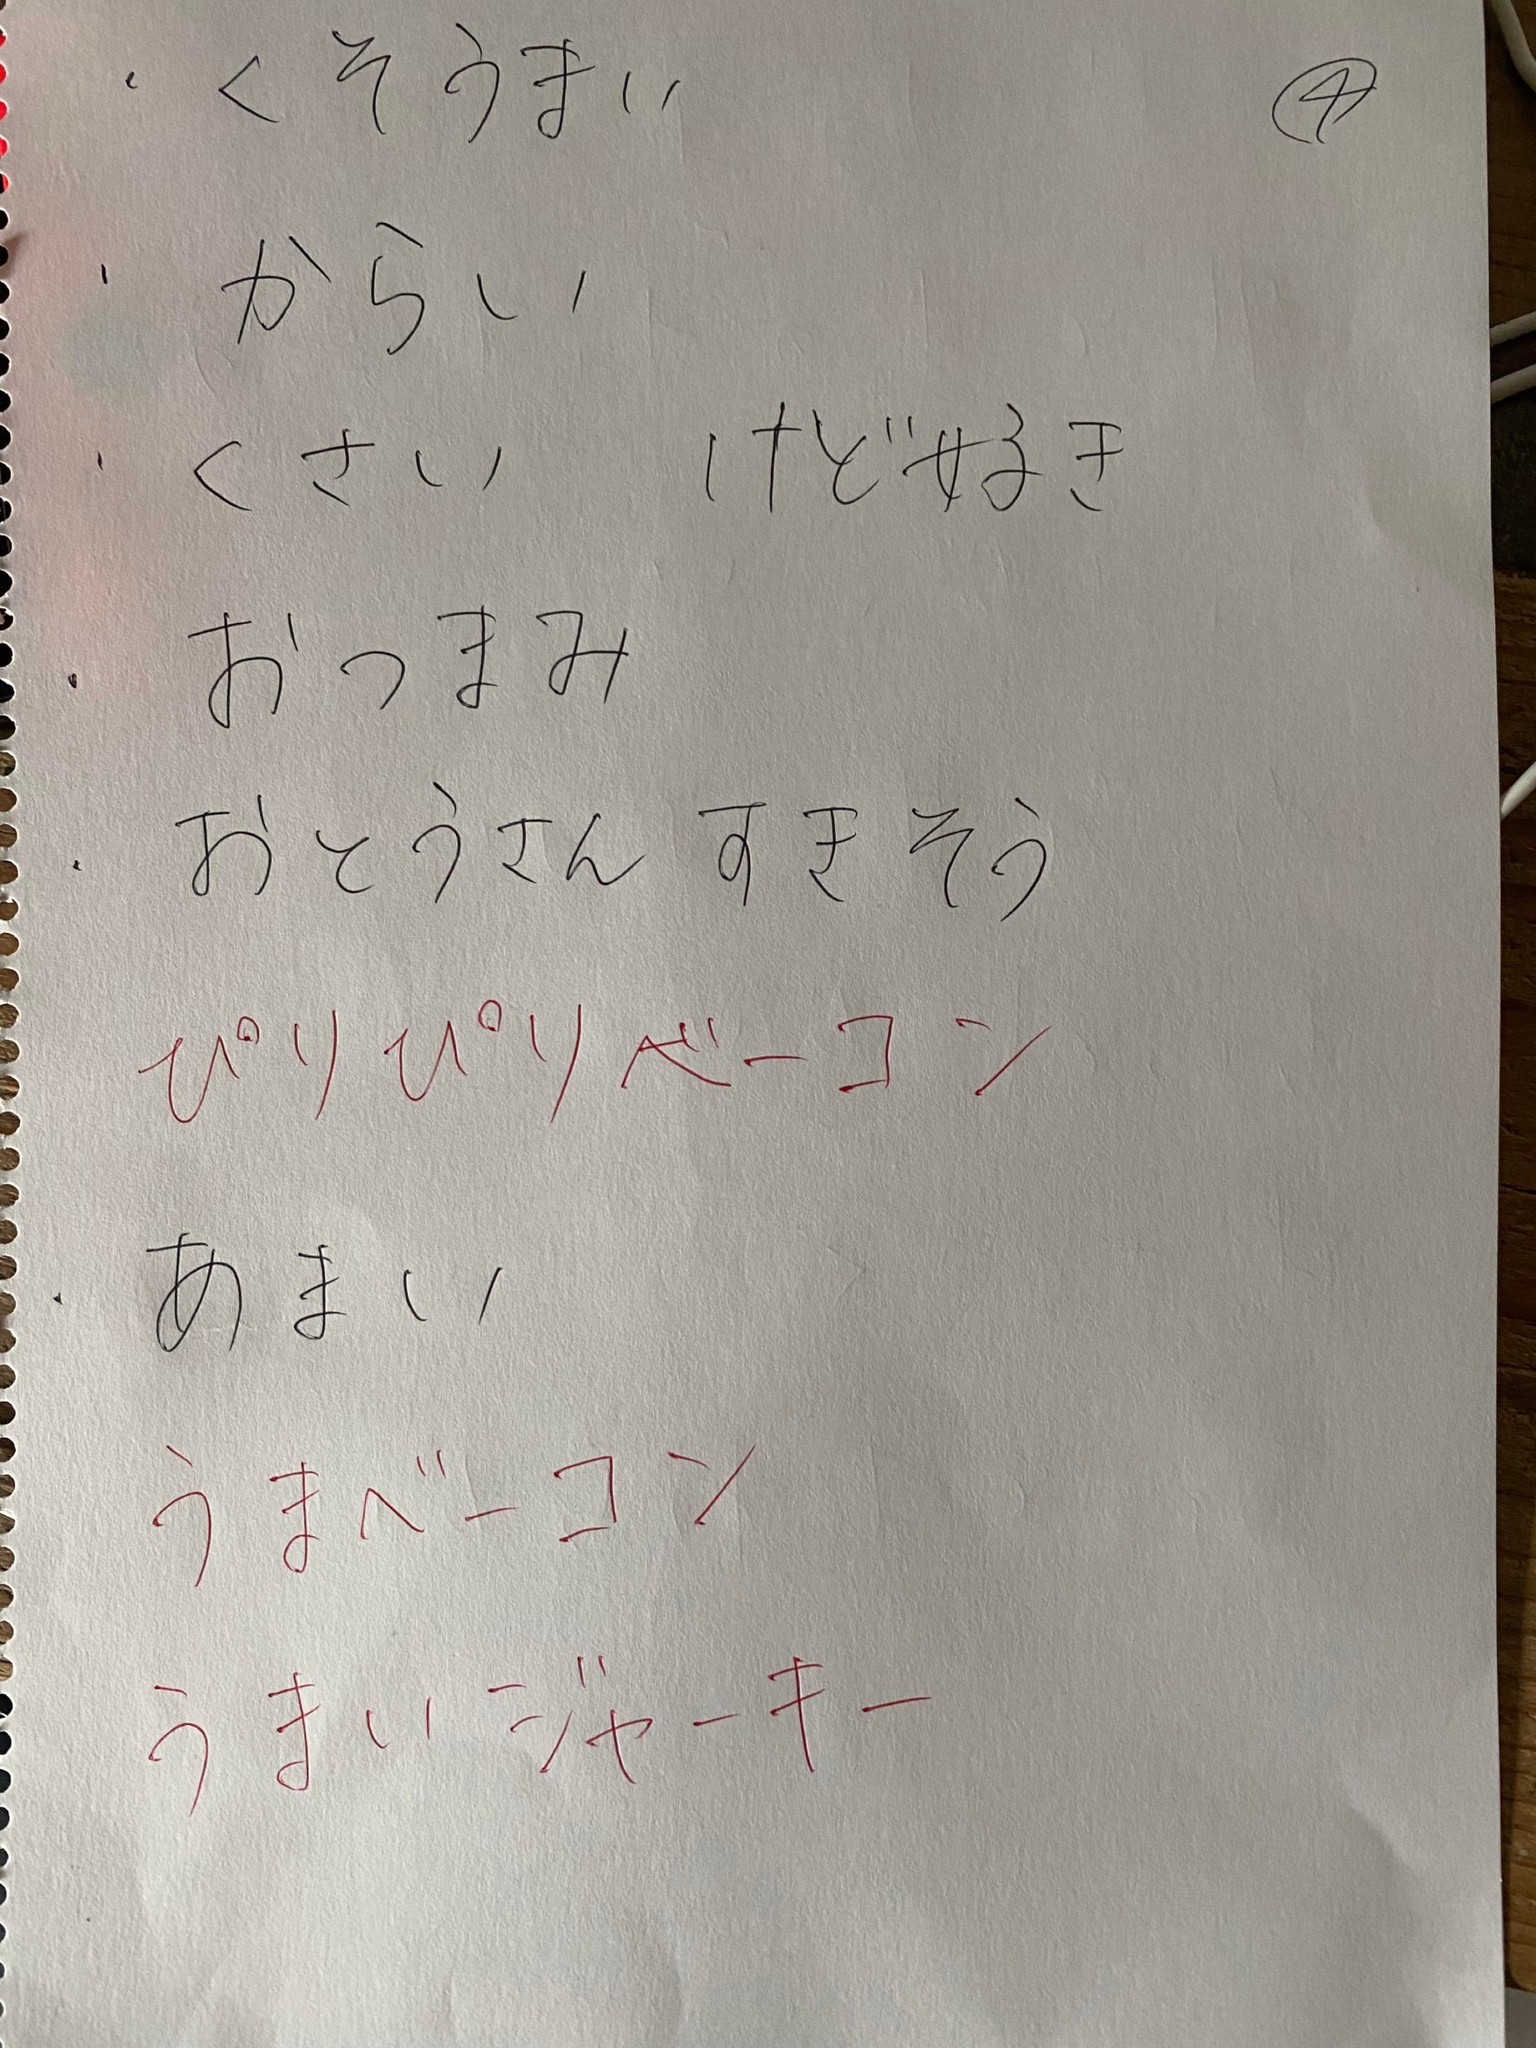 ・くそうまい ④
・からい
・くさい けど好き
・おつまみ
・おとうさん すきそう
ぴりぴりベーコン
・あまい
うまベーコン
うまいジャーキー